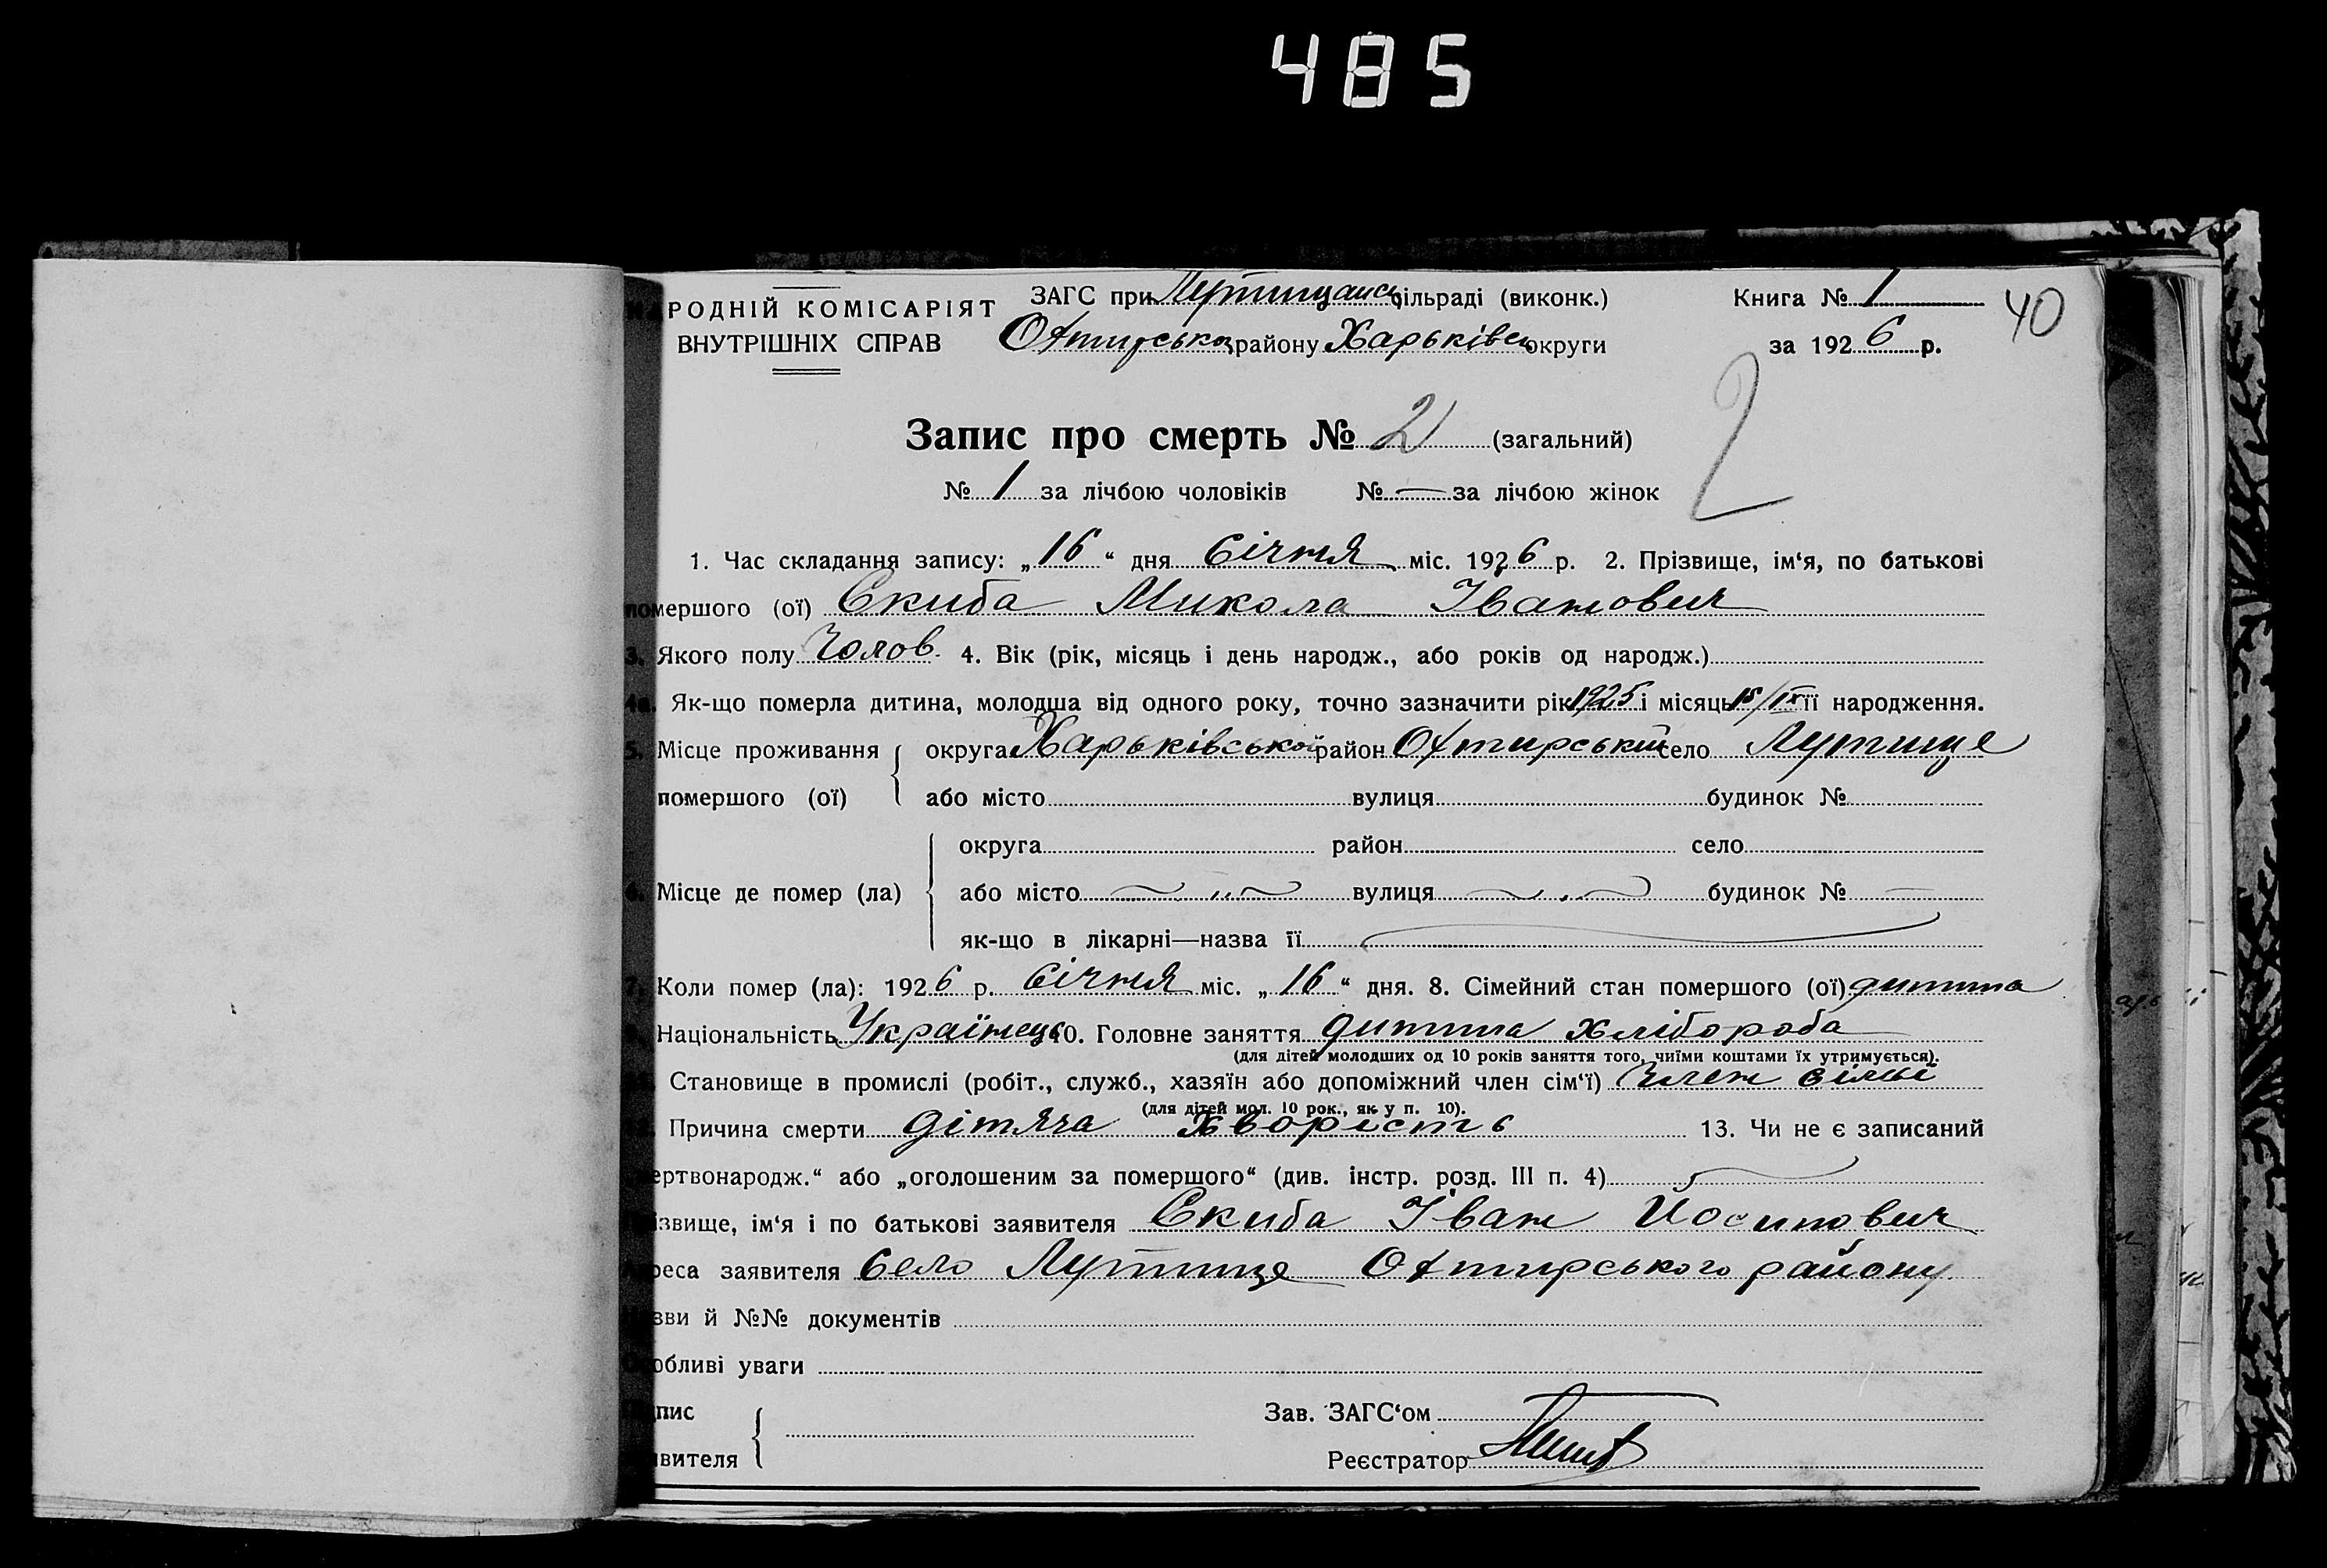 485
РОДНІЙ КОМІСАРІЯТ ЗАГС при Лутищанс ільраді (виконк.) Книга № 1 40
ВНУТРІШНІХ СПРАВ Охтирсько району Харьківс округи за 1926 р.
Запис про смерть № 2 (загальний) 2
№ 1 за лічбою чоловіків № — за лічбою жінок
1. Час складання запису: „16“ дня Січня міс. 1926 р. 2. Прізвище, ім‘я, по батькові
помершого (ої) Скиба Микола Іванович
3. Якого полу Чолов. 4. Вік (рік, місяць і день народж., або років од народж.)
4а. Як-що померла дитина, молодша від одного року, точно зазначити рік 1925 і місяць її народження.
5. Місце проживання округа Харьківської район Охтирський село Лутище
помершого (ої) або місто вулиця будинок №
округа район село
6. Місце де помер (ла) або місто — „ — вулиця — „ — будинок № —
як-що в лікарні—назва її
7. Коли помер (ла): 1926 р. Січня міс. „16“ дня. 8. Сімейний стан помершого (ої) дитина
Національність Українець 10. Головне заняття дитина хлібороба
(для дітей молодших од 10 років заняття того, чиїми коштами їх утримується).
Становище в промислі (робіт., служб., хазяїн або допоміжний член сім‘ї) Член сімьї
(для дітей мол. 10 рок., як у п. 10).
Причина смерти дітяча хворість 13. Чи не є записаний
ертвонародж.“ або „оголошеним за помершого“ (див. інстр. розд. III п. 4)
ізвище, ім‘я і по батькові заявителя Скиба Іван Йосипович
реса заявителя Село Лутище Охтирського району
зви й №№ документів
обливі уваги
пис Зав. ЗАГС‘ом
явителя Реєстратор